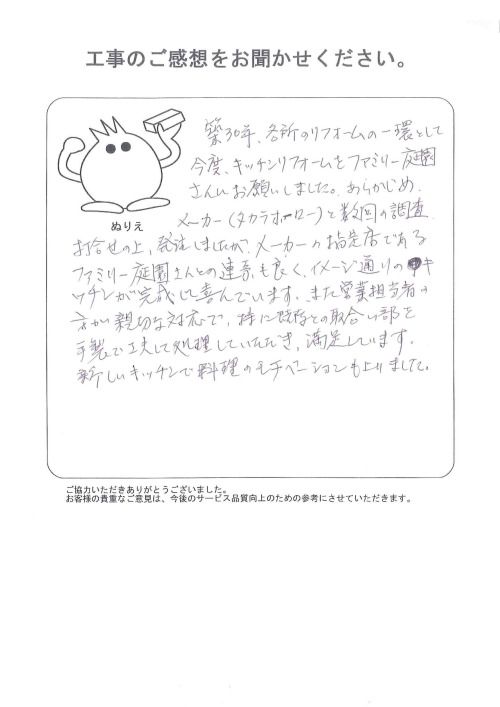 工事のご感想をお聞かせください。
築30年、各所のリフォームの一環として
今度、キッチンリフォームをファミリー庭園
さんにお願いしました。あらかじめ、
メーカー(タカラホーロー)と数回の調査
ぬりえ
打合せの上、発注しましたが、メーカーの指定店である
ファミリー庭園さんとの連携も良く、イメージ通りのキ
ッチンが完成し喜んでいます。また営業担当者の
方が親切な対応で、特に既存との取合い部を
手製で工夫して処理していただき、満足しています。
新しいキッチンで料理のモチベーションも上りました。
ご協力いただきありがとうございました。
お客様の貴重なご意見は、今後のサービス品質向上のための参考にさせていただきます。